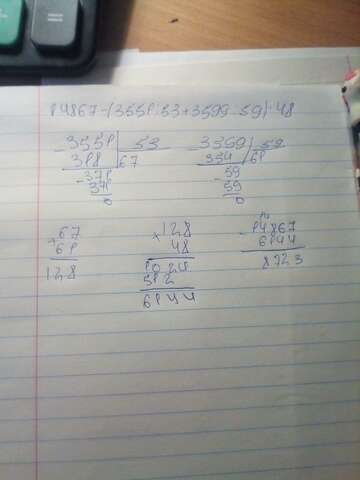 14867-(3551:53+3599:59)·48
3551 53 3599 59
318 67 354 61
- 371 - 59
371 59
0 0
67 128 - 14867
+ 61 × 48 6144
128 1024 8723
512
6144